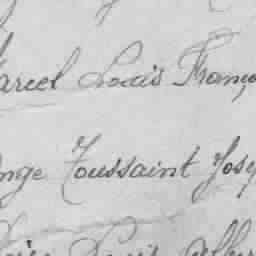 arcel Louis Franço
nge Toussaint Jose
Louis Albe